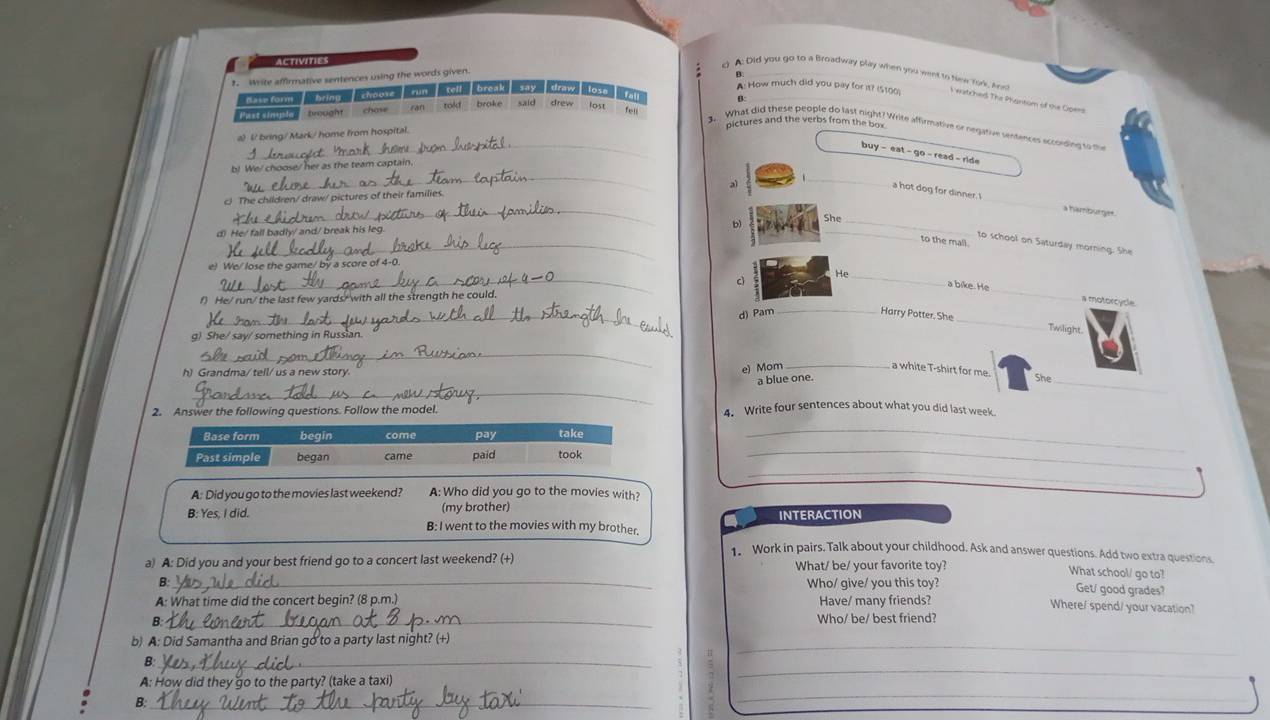 ACTIVITIES
1. Write affirmative sentences using the words given.
Base form bring choose run tell break say draw lose fall
Past simple brought chose ran told broke said drew lost fell
a) I/ bring/ Mark/ home from hospital.
I brought mark home from hospital.
b) We/ choose/ her as the team captain.
We chose her as the team captain.
c) The children/ draw/ pictures of their families.
the children drew pictures of their families.
d) He/ fall badly/ and/ break his leg.
He fell badly and broke his leg
e) We/ lose the game/ by a score of 4-0.
We lost the game by a score of 4-0
f) He/ run/ the last few yards/ with all the strength he could.
He ran the last few yards with all the strength he could
g) She/ say/ something in Russian.
She said something in Russian.
h) Grandma/ tell/ us a new story.
Grandma told us a new story.
2. Answer the following questions. Follow the model.
Base form begin come pay take
Past simple began came paid took
A: Did you go to the movies last weekend?
B: Yes, I did.
A: Who did you go to the movies with?
(my brother)
B: I went to the movies with my brother.
a) A: Did you and your best friend go to a concert last weekend? (+)
B: Yes, We did
A: What time did the concert begin? (8 p.m.)
B: the concert began at 8 p.m
b) A: Did Samantha and Brian go to a party last night? (+)
B: Yes, they did.
A: How did they go to the party? (take a taxi)
B: they went to the party by taxi
c) A: Did you go to a Broadway play when you went to New York, Ann?
B: I watched The Phantom of the Opera
A: How much did you pay for it? ($100)
B:
3. What did these people do last night? Write affirmative or negative sentences according to the
pictures and the verbs from the box.
buy – eat – go – read – ride
a) I a hot dog for dinner. I a hamburger.
b) She to school on Saturday morning. She
to the mall.
c) He a bike. He a motorcycle.
d) Pam Harry Potter. She Twilight.
e) Mom a white T-shirt for me. She
a blue one.
4. Write four sentences about what you did last week.
INTERACTION
1. Work in pairs. Talk about your childhood. Ask and answer questions. Add two extra questions.
What/ be/ your favorite toy?
Who/ give/ you this toy?
Have/ many friends?
Who/ be/ best friend?
What school/ go to?
Get/ good grades?
Where/ spend/ your vacation?